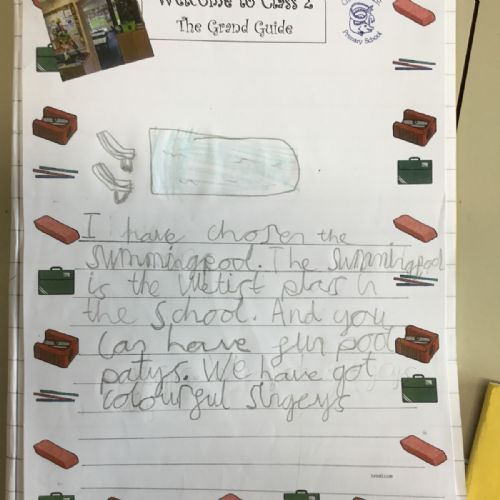 Welcome to Class 2
The Grand Guide
Primary School
I have chosen the
swmmingpool. The swmmingpool
is the wetist plas in
the school. And you
can have fun pool
patys. We have got
colourful